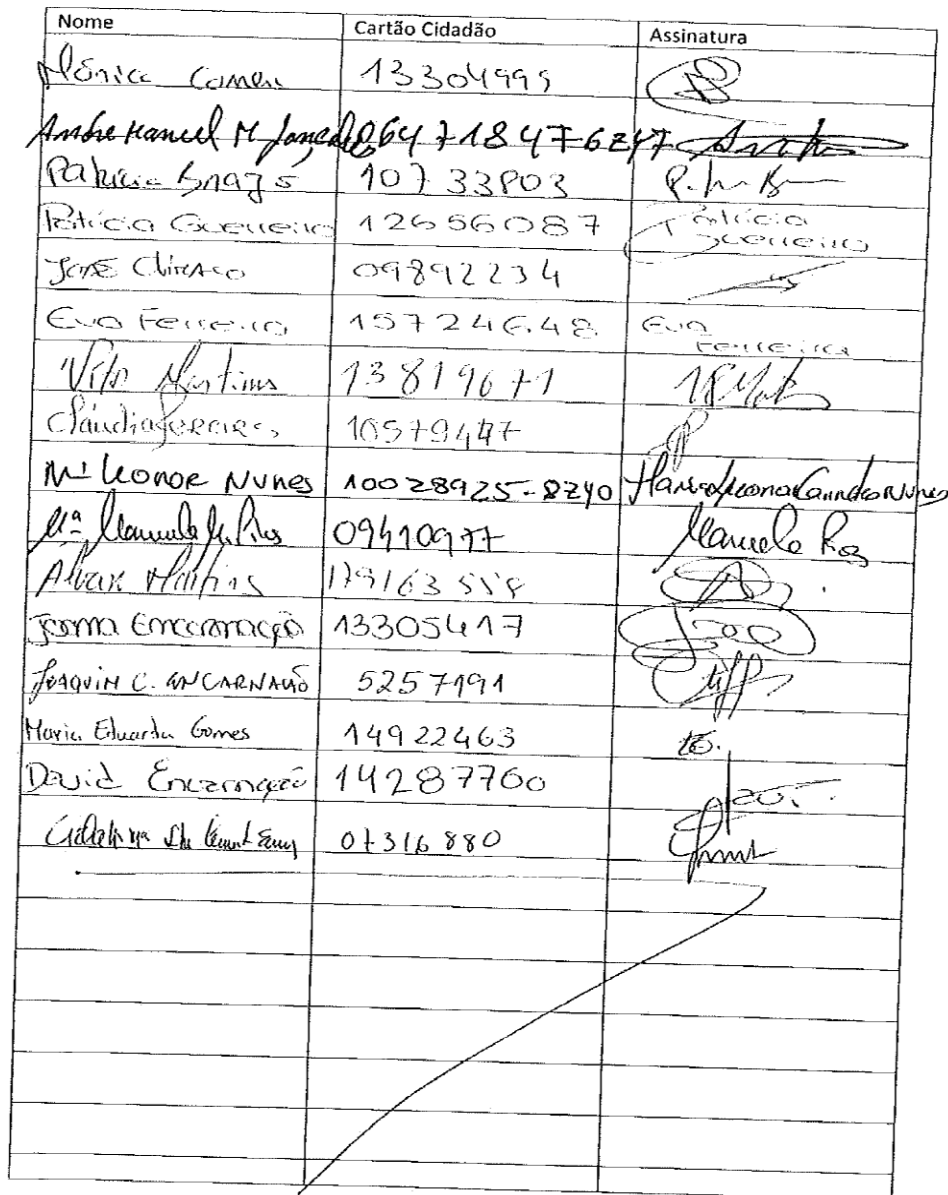 Nome Cartão Cidadão Assinatura
Mónica 13304999
André Manuel M 06471847 6ZY7
Patrícia Braga 10733803
Patrícia Guerreiro 12656087 Patrícia Guerreiro
José Ciríaco 09892234
Eva Ferreira 15724648 Eva Ferreira
Vítor Martins 13819671
Cláudia 10579447
Mª Leonor Nunes 10028925-8ZY0 Nunes
Mª Manuela M. 09410977 Manuela
Alvaro Martins
Joana Encarnação 13305417
Joaquin C. Encarnação 5257191
Maria Eduarda Gomes 14922463
David Encarnação 14287760
07316880